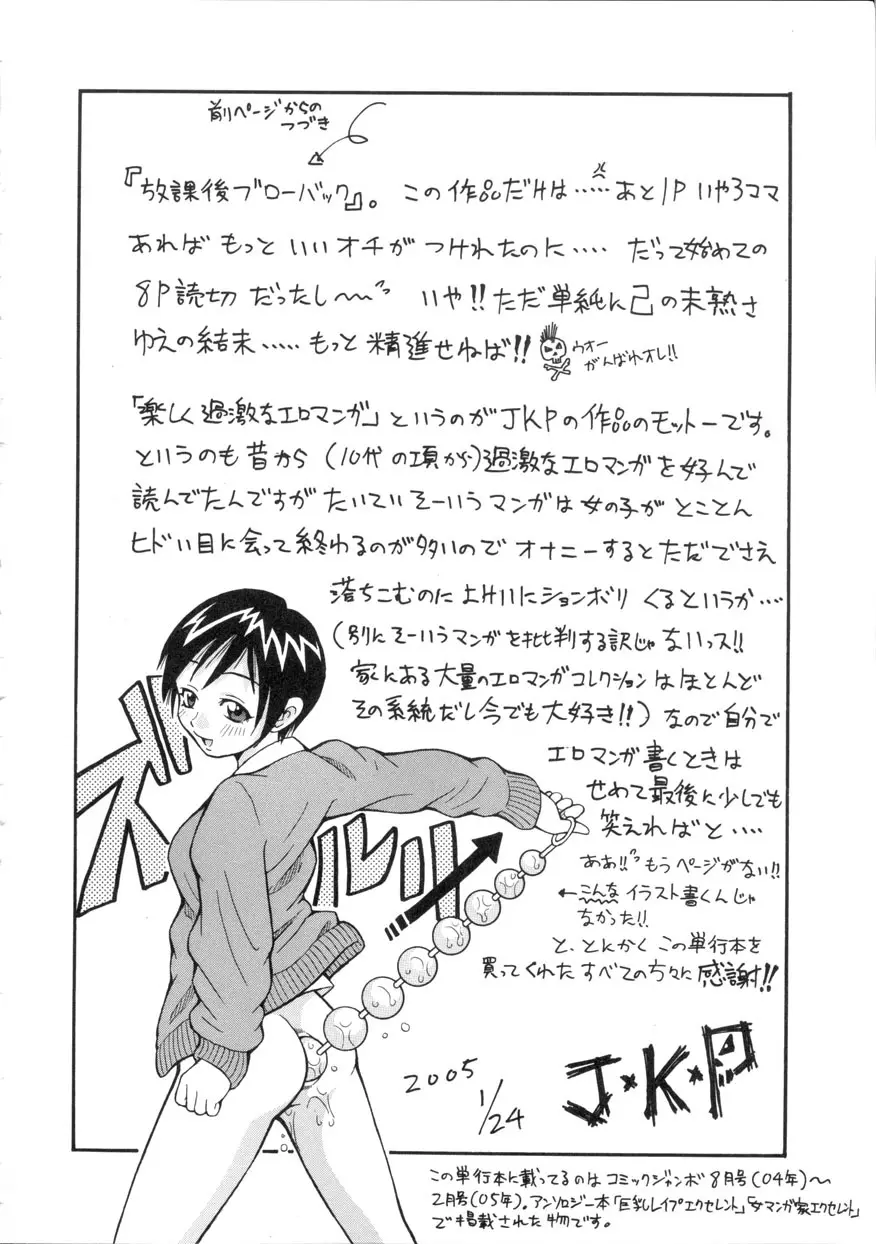 前ページからの
つづき
『放課後ブローバック』。この作品だけは……あと1P いやろママ
あれば もっと いい オチが つけれたのに…… だって始めての
8P読切 だったし〜〜 いや!!ただ単純に己の未熟さ
ゆえの結末…… もっと 精進せねば!!
ウオー
がんばれオレ!!
「楽しく過激なエロマンガ」というのがJKPの作品のモットーです。
というのも昔から(10代の項から)過激なエロマンガを好んで
読んでたんですが たいてい そーいうマンガは 女の子が とことん
ヒドい目に会って終わるのが多いので オナニーすると ただでさえ
落ちこむのに よけいにションボリ くるというか…
(別にそーいうマンガを批判する訳じゃないっス!!
家にある大量のエロマンガコレクションはほとんど
その系統だし今でも大好き!!)なので自分で
エロマンガ書くときは
せめて最後に少しでも
笑えればと……
ああ!! もうページがない!!
←こんな イラスト書くんじゃ
なかった!!
と、とにかく この単行本を
買ってくれた すべての方々に 感謝!!
ズルルリ
2005
1/24
J・K・P
この単行本に載ってるのは コミックジャンボ 8月号(04年)〜
2月号(05年)。アンソロジー本「巨乳レイプエクセレント」「女マンガ家エクセレント」
で掲載された物です。